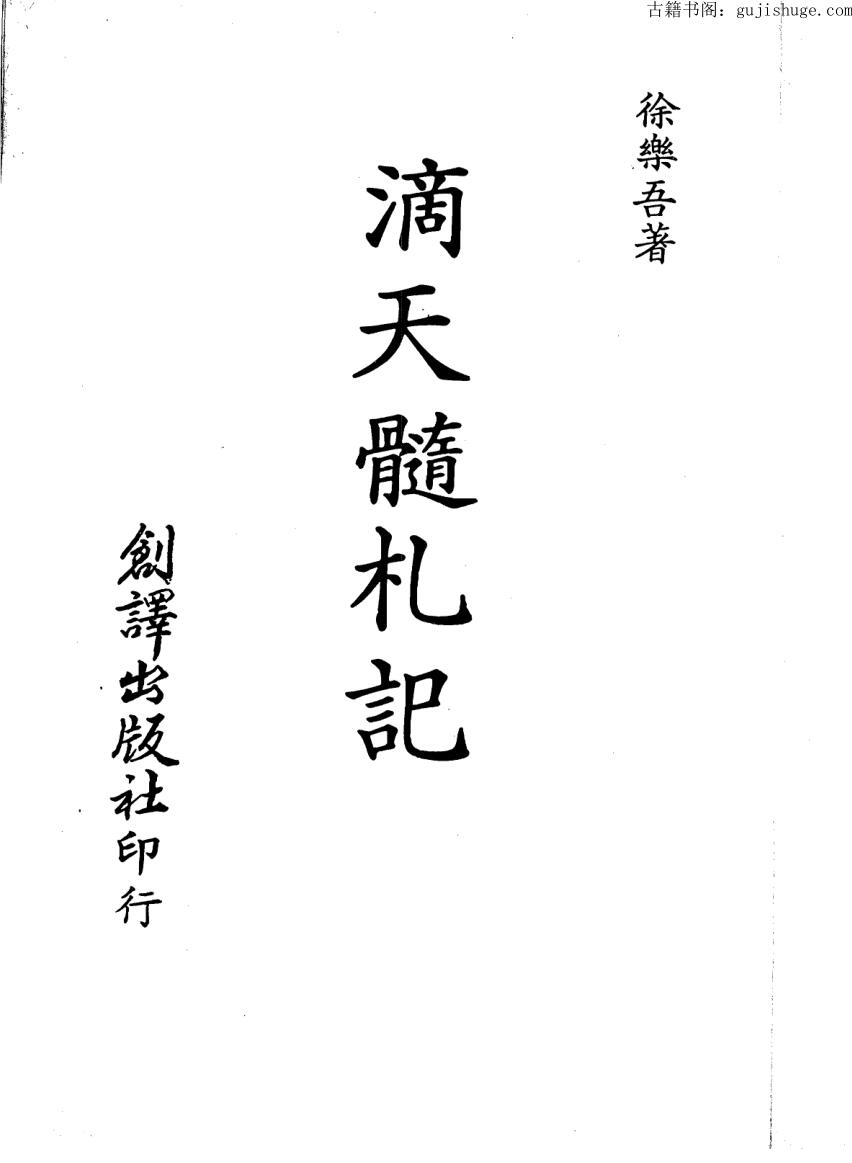 古籍书阁：gujishuge.com
徐樂吾著
滴天髓札記
創譯出版社印行